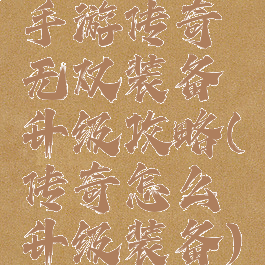 手游传奇
无双装备
升级攻略(
传奇怎么
升级装备)